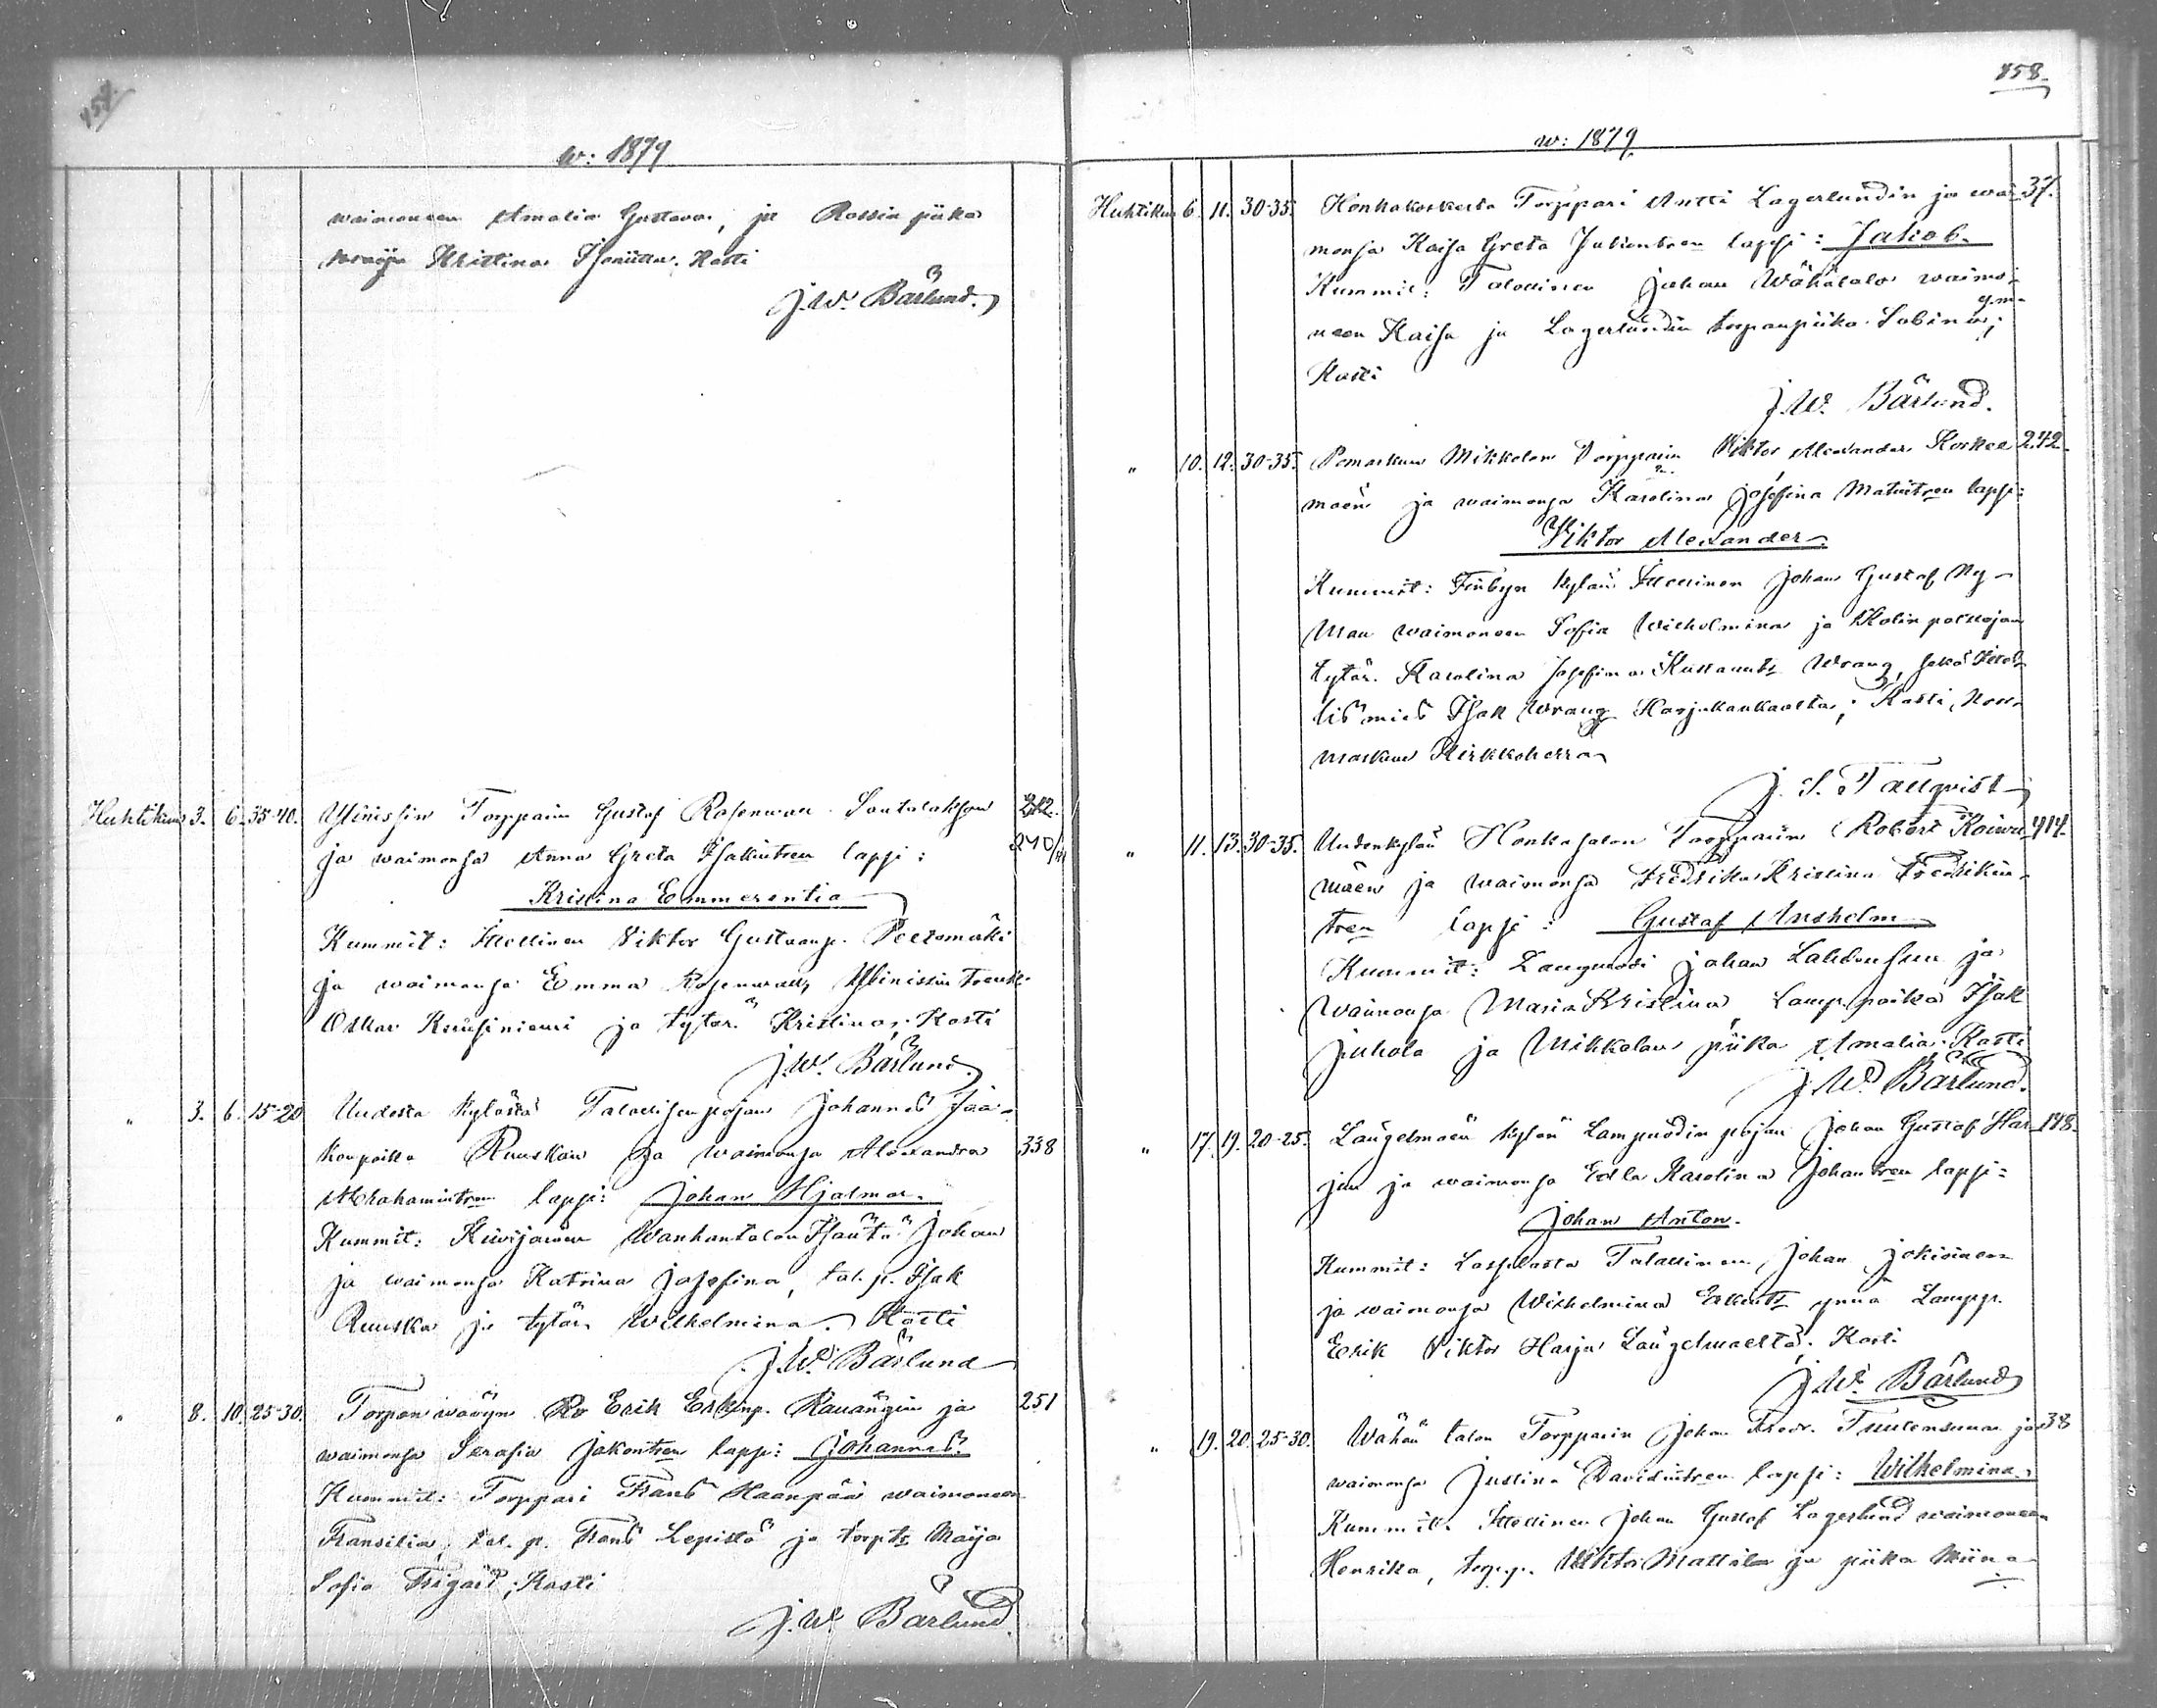 w: 1879
waimoneen Amalia Gustava, ja Rossin piika
Kristina. Kasti
J. W. Bärlund.
Huhtikuu 3. 6. 35-40. Torpparin Gustaf Rosenwan Santalahsen 242.
ja waimonsa Anna Greta Isakintren lapsi: 240
Kristina Emmerentia
Kummit: Itsellinen Viktor Gustaanp. Peltomäki
ja waimonsa Emma Rosenwan,
Oskar ja tytär Kristina; Kasti
J. W. Bärlund.
" 3. 6. 15-20 Uudesta kylästä Talollisen pojan Johannes Isaa-
konpoika Ruuskan ja waimonsa Alexandra 338
Abrahamintren lapsi: Johan Hjalmar.
Kummit: Kiwijärwen Wanhantalon Isäntä Johan
ja waimonsa Katrina Josefina, tal. p. Isak
Ruuska ja tytär Wilhelmina. Kasti
J. W. Bärlund
" 8. 10. 25-30 Torpan wäwyn Erik Erkinp. ja 251
waimonsa Serafia Jakontren lapsi: Johannes.
Kummit: Torppari Frans Haanpää waimoneen
Fransilia, tal. p. Frans Lepistö ja torp.tr Maija
Sofia; Kasti
J. W. Bärlund.
158.
w: 1879
Huhtikuu 6. 11. 30-35. Honkakoskelta Torppari Antti Lagerlundin ja wai- 37.
monsa Kaisa Greta Juhontren lapsi: Jakob.
Kummit: Talollinen Johan Wähätalo waimo-
neen Kaisa ja Lagerlundin torpanpiika Sabina;
y.m.
Kasti
J. W. Bärlund.
" 10. 12. 30-35. Pomarkun Mikkolan Torpparin Viktor Alexander Koskee 242.
mäen ja waimonsa Karolina Josefina Matintren lapsi:
Viktor Alexander.
Kummit: Finbyn kylän Itsellinen Johan Gustaf Ny-
man waimoneen Sofia Wilhelmina ja
tytär. Karolina Josefina Kustaantr Wrang, sekä Itsel-
lis mies Isak Wrang Harjakankaalta; Kasti, Nor-
markun Kirkkoherra
J. S. Tallqvist
" 11. 13. 30-35. Uudenkylän Honkasalon Torpparin Robert Koiwu- 414.
mäen ja waimonsa Fredrika Kristina Fredrikin-
tren lapsi: Gustaf Anshelm
Kummit: Lampuodi Johan Lahdensuu ja
waimonsa Maria Kristina, Lamp. poika Isak
Juhola ja Mikkolan piika Amalia. Kasti
J. W. Bärlund.
" 17. 19. 20-25. Laugelmäen kylän Lampuodin pojan Johan Gustaf Har- 148.
jun ja waimonsa Edla Karolina Johantren lapsi:
Johan Anton.
Kummit: Lassilasta Talollinen Johan Jokioinen
ja waimonsa Wilhelmina Erkintr ynnä Lamp.p.
Erik Viktor Harju Laugelmaelta; Kasti.
J. W. Bärlund
" 19. 20. 25-30. Wähän talon Torpparin Johan Fredr. Tuulensuun ja 38
waimonsa Justina Davidintren lapsi: Wilhelmina.
Kummit: Itsellinen Johan Gustaf Lagerlund waimoneen
Henrika, torp.p. Viktor Mattila ja piika Miina